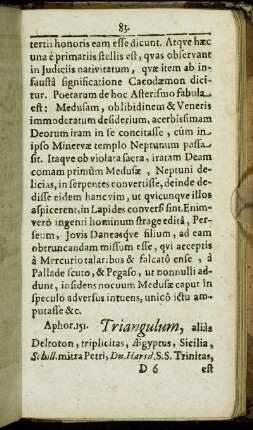 83.
tertii honoris eam esse dicunt. Atqve hæc
una è primariis stellis est, qvas observant
in Judiciis nativitatum, qvæ item ab in-
faustâ significatione Cacodæmon dici-
tur. Poetarum de hoc Asterismo fabula
est: Medusam, ob libidinem & Veneris
immoderatum desiderium, acerbissimam
Deorum iram in se concitasse, cùm in
ipso Minervæ templo Neptunum passa
sit. Itaqve ob violata sacra, iratam Deam
comam primùm Medusæ, Neptuni de-
licias, in serpentes convertisse, deinde de-
disse eidem hanc vim, ut qvicunqve illos
aspicerent, in Lapides conversi sint. Enim-
verò ingenti hominum strage editâ, Per-
seum, Jovis Danaesqve filium, ad eam
obtruncandam missum esse, qvi acceptis
à Mercurio talaribus & falcatô ense, à
Pallade scuto, & Pegaso, ut nonnulli ad-
dunt, insidens nocuum Medusæ caput in
speculo adversus intuens, unicô ictu am-
putasse &c.
Aphor. 151. Triangulum, aliàs
Deltoton, triplicitas, Ægyptus, Sicilia,
Schill. mitra Petri, Dn. Harsd. S.S. Trinitas,
D 6 est